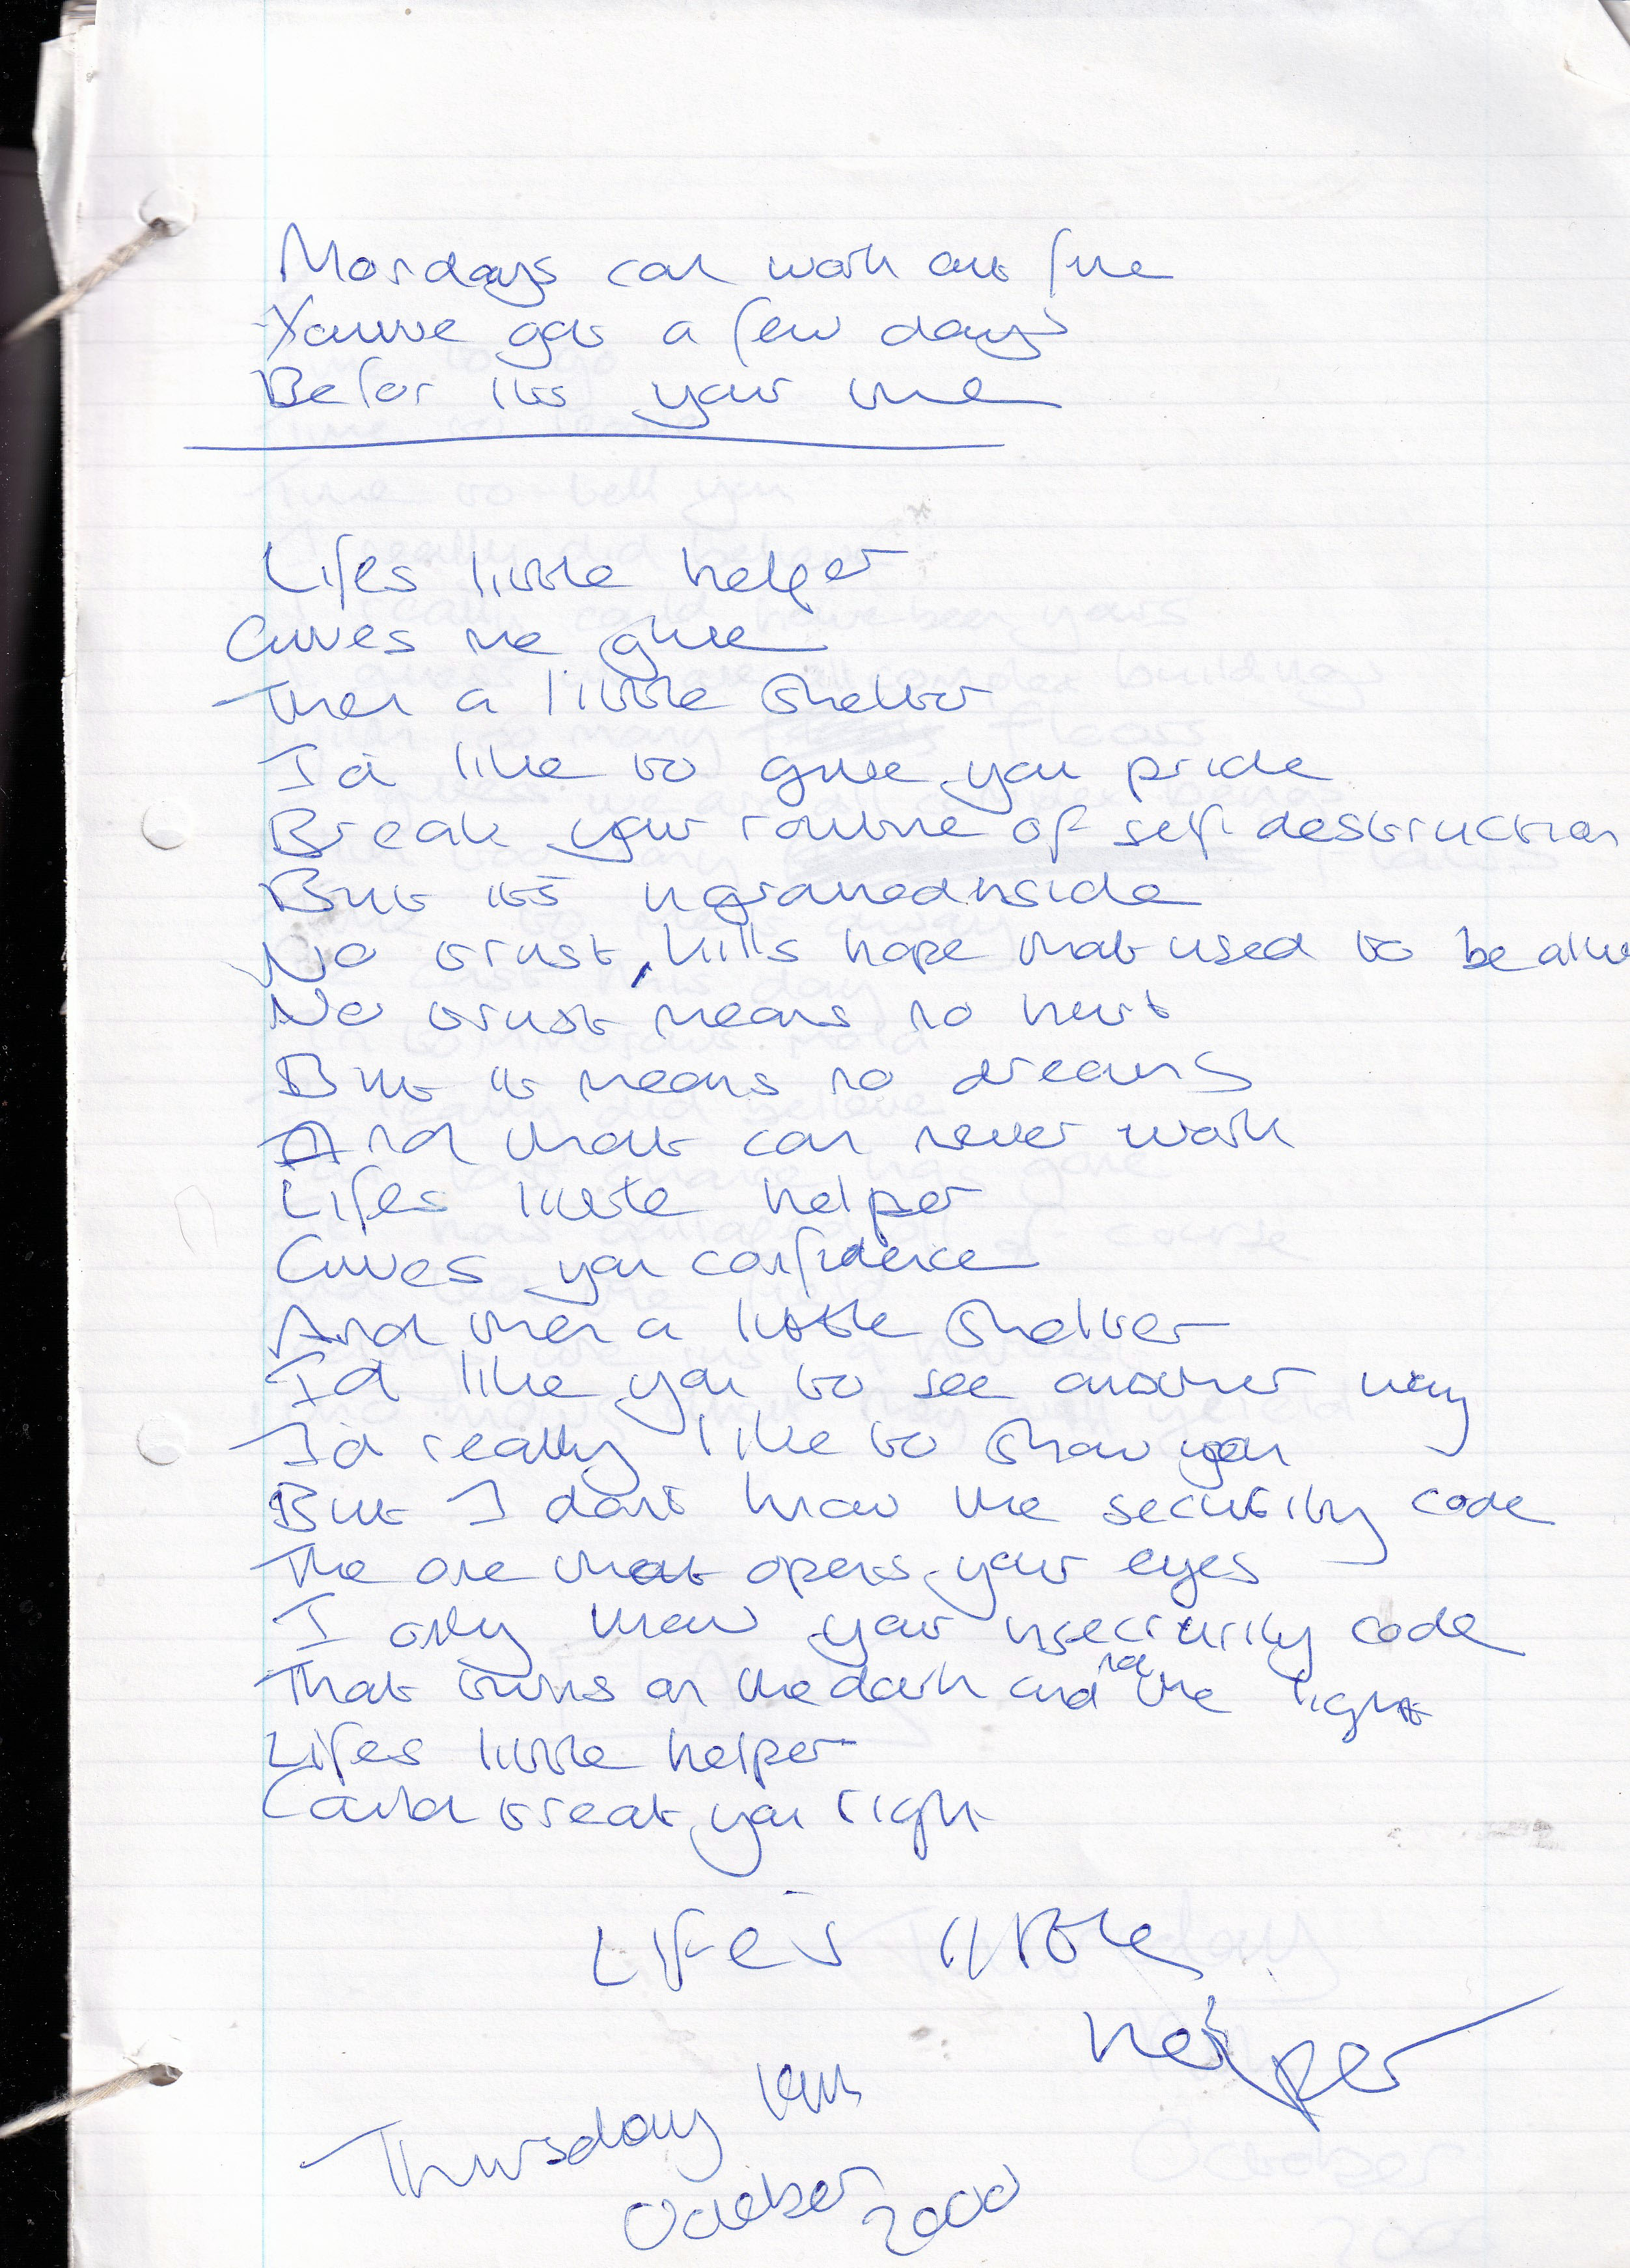 Mondays can work out fine
Youve got a few days
Befor its your time
Lifes little helper
Gives me glue
Then a little shelter
Id like to give you pride
Break your routine of self destruction
But its ingrained inside
No trust, kills hope that used to be alive
No trust means no hurt
But it means no dreams
And that can never work
Lifes little helper
Gives you confidence
And then a little shelter
Id like you to see another way
Id really like to show you
But I dont know the security code
The one that opens your eyes
I only know your insecurity code
That turns on the dark and not the light
Lifes little helper
Could treat you right
Life's little
helper
Thursday
October 2000